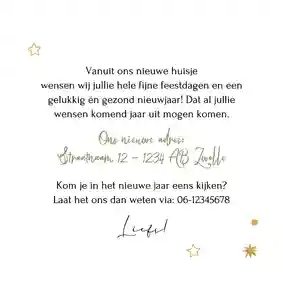 Vanuit ons nieuwe huisje
wensen wij jullie hele fijne feestdagen en een
gelukkig én gezond nieuwjaar! Dat al jullie
wensen komend jaar uit mogen komen.
Ons nieuwe adres:
Straatnaam 12 - 1234 AB Zwolle
Kom je in het nieuwe jaar eens kijken?
Laat het ons dan weten via: 06-12345678
Liefs!